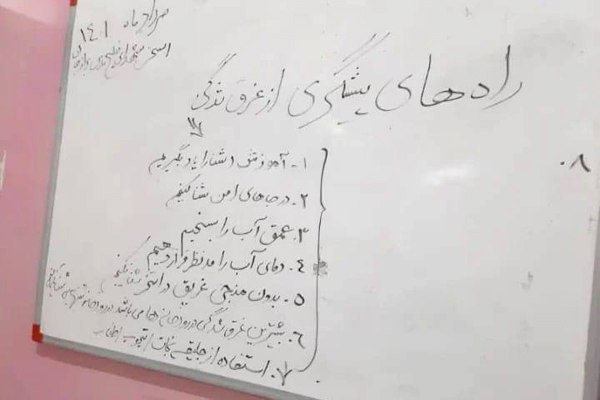 مرداد ماه ۱۴۰۱
استخر شهدای خلیج فارس
راههای پیشگیری از غرق شدگی
۱- آموزش شنا را یاد بگیریم
۲- در جاهای امن شنا کنیم
۳- عمق آب را بسنجیم
۴- دمای آب را مد نظر قرار دهیم
۵- بدون منجی غریق در استخر شنا نکنیم
۶- بیشترین غرق شدگی در رودخانه ها می باشد در رودخانه
۷- استفاده از جلیقه نجات
۸-